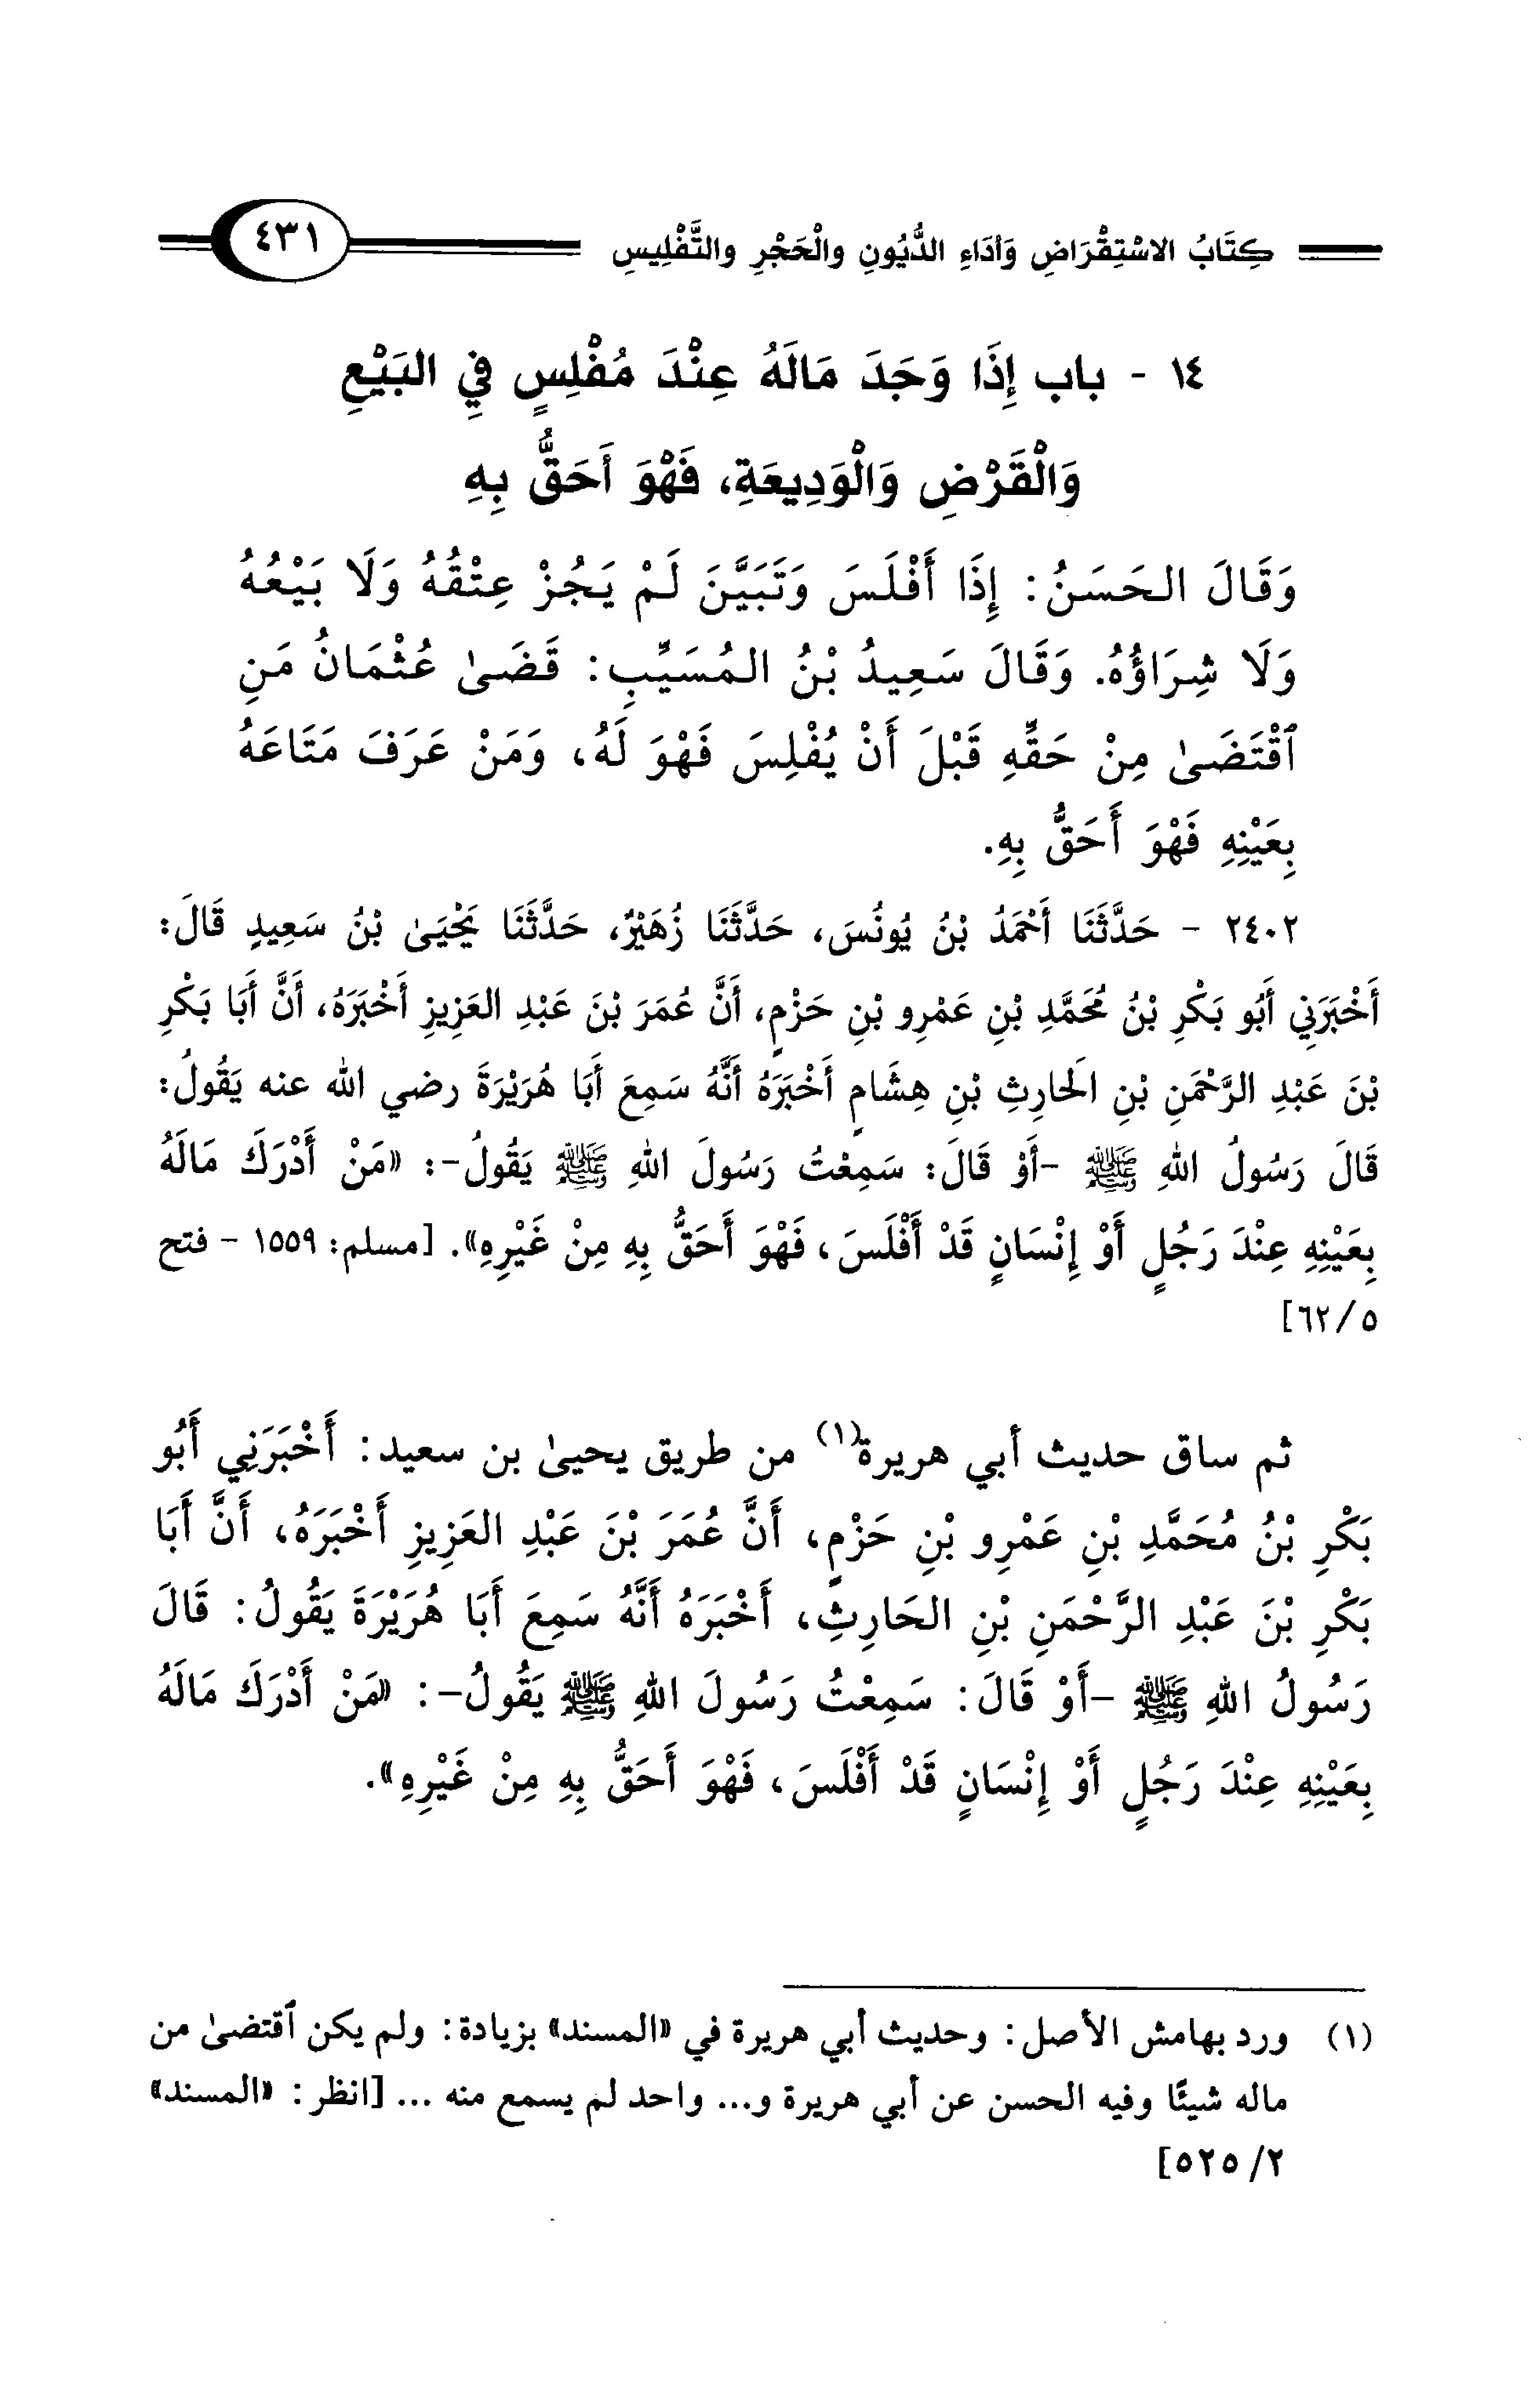 كِتَابُ الاسْتِقْرَاضِ وَأدَاءِ الدُّيُونِ والْحَجْرِ والتَّفْلِيسِ ٤٣١
١٤ - باب إِذَا وَجَدَ مَالَهُ عِنْدَ مُفْلِسٍ فِي البَيْعِ
وَالْقَرْضِ وَالْوَدِيعَةِ، فَهْوَ أَحَقُّ بِهِ
وَقَالَ الحَسَنُ: إِذَا أَفْلَسَ وَتَبَيَّنَ لَمْ يَجُزْ عِتْقُهُ وَلَا بَيْعُهُ
وَلَا شِرَاؤُهُ. وَقَالَ سَعِيدُ بْنُ المُسَيِّبِ: قَضَىٰ عُثْمَانُ مَنِ
ٱقْتَضَىٰ مِنْ حَقِّهِ قَبْلَ أَنْ يُفْلِسَ فَهْوَ لَهُ، وَمَنْ عَرَفَ مَتَاعَهُ
بِعَيْنِهِ فَهْوَ أَحَقُّ بِهِ.
٢٤٠٢ - حَدَّثَنَا أَحْمَدُ بْنُ يُونُسَ، حَدَّثَنَا زُهَيْرٌ، حَدَّثَنَا يَحْيَىٰ بْنُ سَعِيدٍ قَالَ:
أَخْبَرَنِي أَبُو بَكْرِ بْنُ مُحَمَّدِ بْنِ عَمْرِو بْنِ حَزْمٍ، أَنَّ عُمَرَ بْنَ عَبْدِ العَزِيزِ أَخْبَرَهُ، أَنَّ أَبَا بَكْرِ
بْنَ عَبْدِ الرَّحْمَنِ بْنِ الَحارِثِ بْنِ هِشَامٍ أَخْبَرَهُ أَنَّهُ سَمِعَ أَبَا هُرَيْرَةَ رضي الله عنه يَقُولُ:
قَالَ رَسُولُ اللهِ ﷺ -أَوْ قَالَ: سَمِعْتُ رَسُولَ اللهِ ﷺ يَقُولُ-: «مَنْ أَدْرَكَ مَالَهُ
بِعَيْنِهِ عِنْدَ رَجُلٍ أَوْ إِنْسَانٍ قَدْ أَفْلَسَ، فَهْوَ أَحَقُّ بِهِ مِنْ غَيْرِهِ». [مسلم: ١٥٥٩ - فتح
٥/ ٦٢]
ثم ساق حديث أبي هريرة(١) من طريق يحيىٰ بن سعيد: أَخْبَرَنِي أَبُو
بَكْرِ بْنُ مُحَمَّدِ بْنِ عَمْرِو بْنِ حَزْمٍ، أَنَّ عُمَرَ بْنَ عَبْدِ العَزِيزِ أَخْبَرَهُ، أَنَّ أَبَا
بَكْرِ بْنَ عَبْدِ الرَّحْمَنِ بْنِ الحَارِثِ، أَخْبَرَهُ أَنَّهُ سَمِعَ أَبَا هُرَيْرَةَ يَقُولُ: قَالَ
رَسُولُ اللهِ ﷺ -أَوْ قَالَ: سَمِعْتُ رَسُولَ اللهِ ﷺ يَقُولُ-: «مَنْ أَدْرَكَ مَالَهُ
بِعَيْنِهِ عِنْدَ رَجُلٍ أَوْ إِنْسَانٍ قَدْ أَفْلَسَ، فَهْوَ أَحَقُّ بِهِ مِنْ غَيْرِهِ».
(١) ورد بهامش الأصل: وحديث أبي هريرة في «المسند» بزيادة: ولم يكن ٱقتضىٰ من
ماله شيئًا وفيه الحسن عن أبي هريرة و... واحد لم يسمع منه ... [انظر: «المسند»
٢/ ٥٢٥]